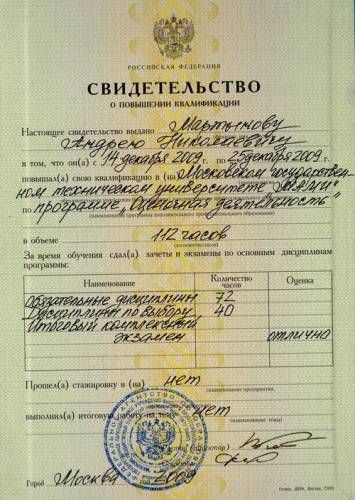 РОССИЙСКАЯ ФЕДЕРАЦИЯ
СВИДЕТЕЛЬСТВО
О ПОВЫШЕНИИ КВАЛИФИКАЦИИ
Настоящее свидетельство выдано Мартынову
Андрею Николаевичу
в том, что он(а) с 14 декабря 2009 г. по 25 декабря 2009 г.
повышал(а) свою квалификацию в (на) Московском государствен-
ном техническом университете "МАМИ"
по программе „Оценочная деятельность"
(наименование программы дополнительного профессионального образования)
в объеме 112 часов
(количество часов)
За время обучения сдал(а) зачеты и экзамены по основным дисциплинам
программы:
Наименование Количество часов Оценка
Обязательные дисциплины 72
Дисциплины по выбору 40
Итоговый комплексный
экзамен отлично
Прошел(а) стажировку в (на) нет
(наименование предприятия,
выполнил(а) итоговую работу на тему нет
(наименование темы)
Город Москва 2009